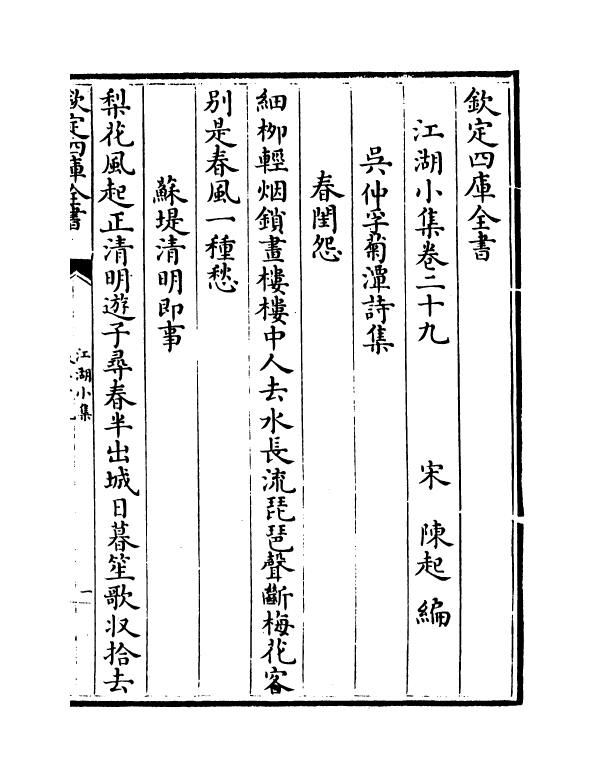 欽定四庫全書
江湖小集卷二十九 宋 陳起 編
吳仲孚菊潭詩集
春閨怨
細栁輕烟鎖畫樓樓中人去水長流琵琶聲斷梅花客
別是春風一種愁
蘇堤清明即事
梨花風起正清明遊子尋春半出城日暮笙歌収拾去
欽定四庫全書
江湖小集
一